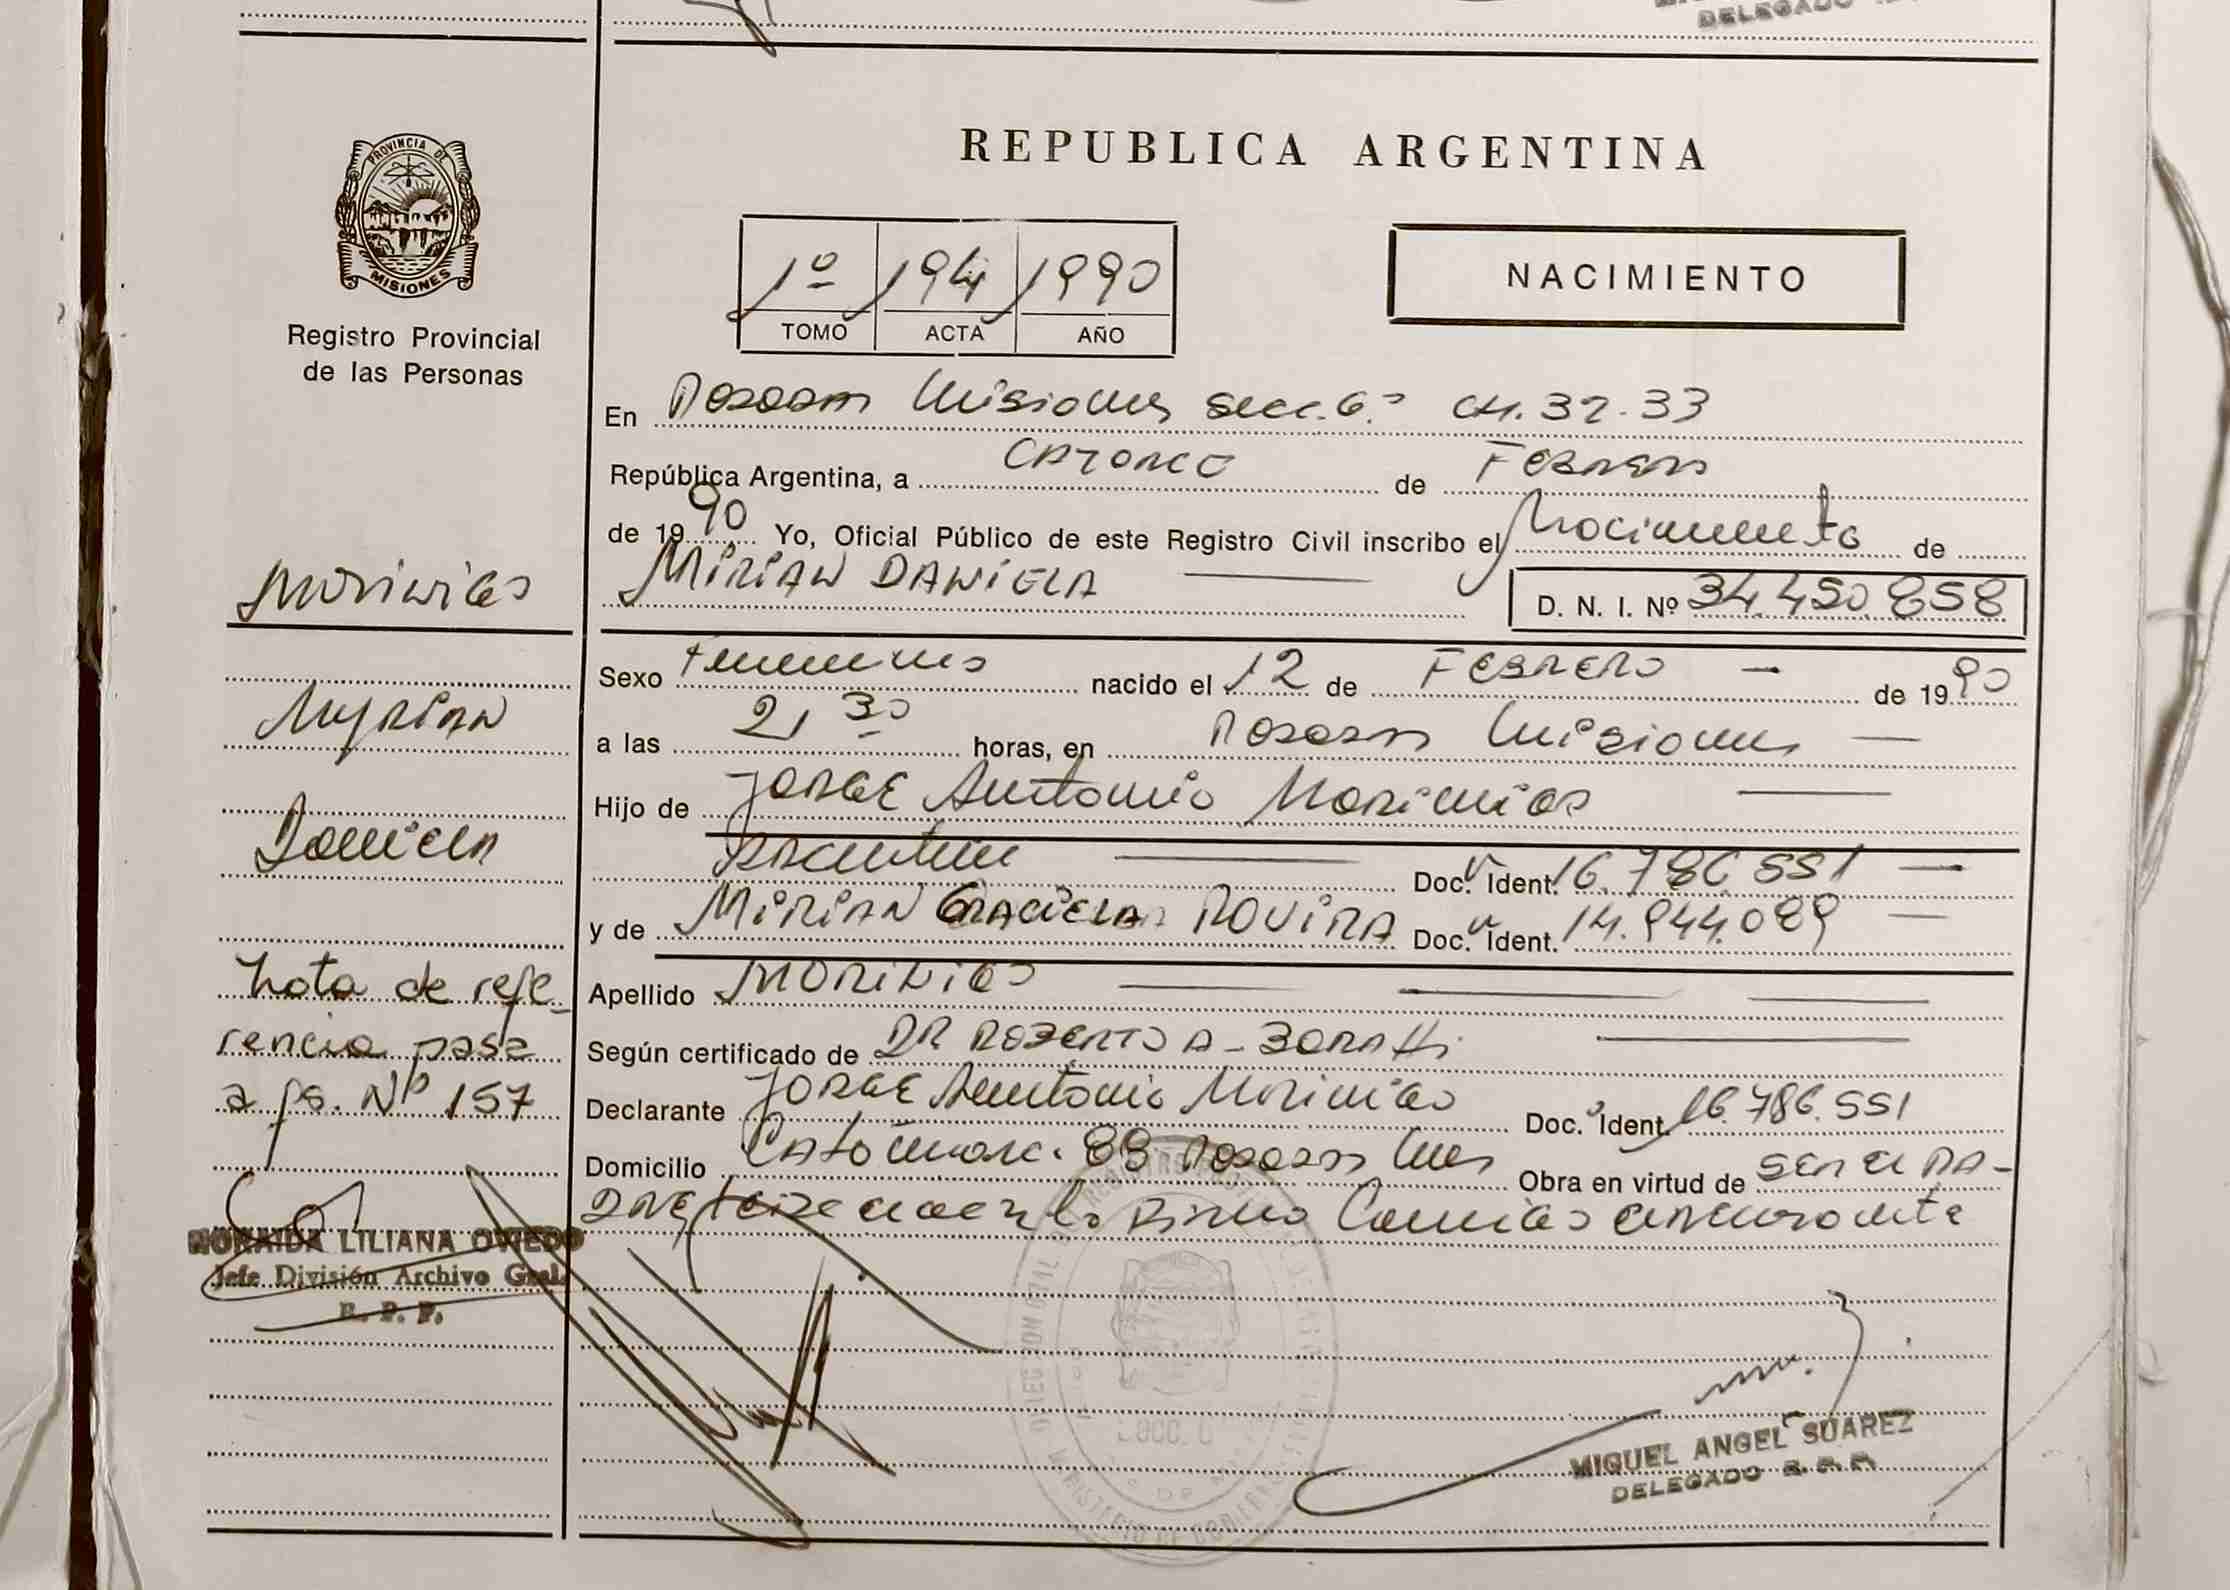 DELEGADO
REPUBLICA ARGENTINA
PROVINCIA DE
MISIONES
1º 194 1990
TOMO ACTA AÑO
NACIMIENTO
Registro Provincial
de las Personas
En Posadas Misiones secc. 6ª CH. 32-33
República Argentina, a CATORCE de Febrero
de 1990 Yo, Oficial Público de este Registro Civil inscribo el Nacimiento de
MIRIAN DANIELA D. N. I. Nº 34.450.858
Sexo Femenino nacido el 12 de FEBRERO de 1990
a las 21 30 horas, en Posadas Misiones
Hijo de JORGE Antonio Moriñigo
Doc. Ident. 16.786.551
y de MIRIAN GRACIELA ROVIRA Doc. Ident. 14.944.089
Apellido MORIÑIGO
Según certificado de DR ROBERTO A.
Declarante JORGE Antonio Moriñigo Doc. Ident. 16.786.551
Domicilio Catamarca 88 Posadas Mnes Obra en virtud de SER EL PA-
DRE
Moriñigo
Myrian
Daniela
Nota de refe-
rencia pasa
a fs. Nº 157
LILIANA OVIEDO
Jefe División Archivo Gral.
R. P. P.
MIGUEL ANGEL SUAREZ
DELEGADO R. P. P.